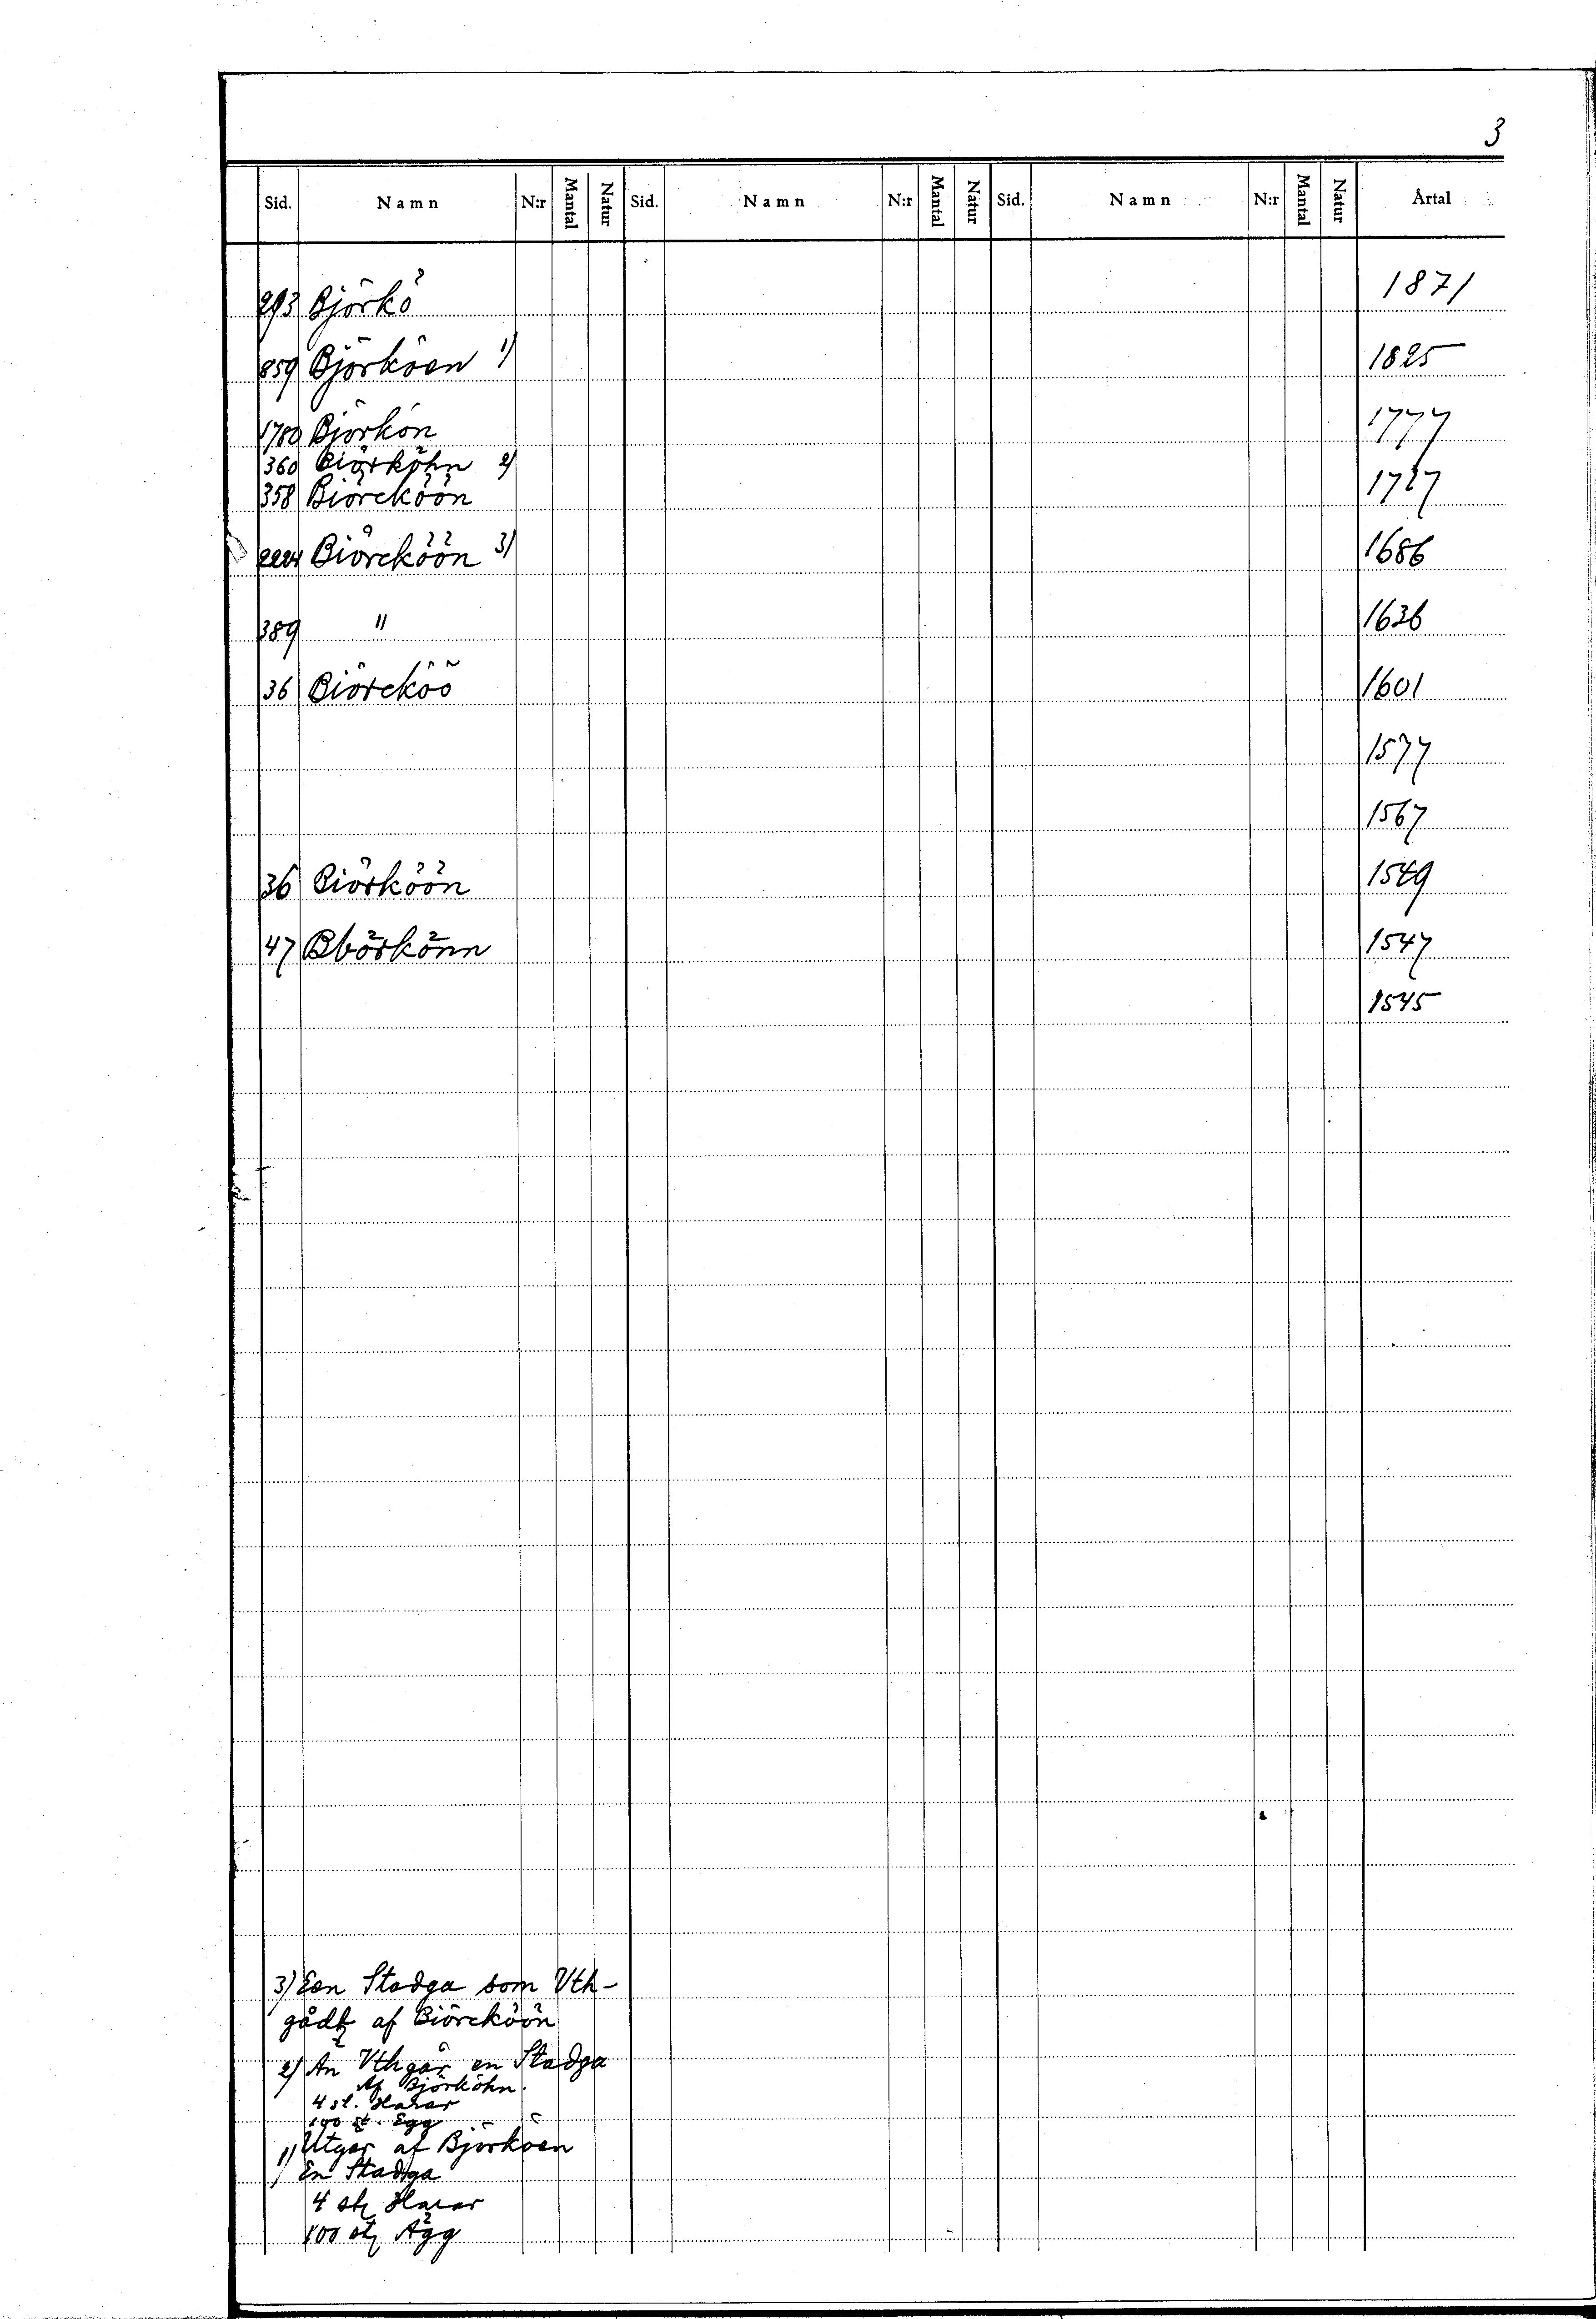 3
Sid. Namn N:r Mantal Natur Sid. Namn N:r Mantal Natur Sid. Namn N:r Mantal Natur Årtal
293 Björkö 1871
859 Björköen 1) 1825
1780 Björkön 1777
360 Biörköhn 2)
358 Biörcköön 1727
2224 Biörcköön 3) 1686
389 " 1636
36 Biörcköö 1601
1577
1567
36 Biörköön 1549
47 Bbörkönn 1547
1545
3) Een Stadga som Vth-
gådtz af Biörcköön
2) An Vthgår en Stadga
Af Björköhn.
4 st. Harar
100 st. Egg
1) Utgår af Björköen
En Stadga
4 st Harar
100 st Ägg